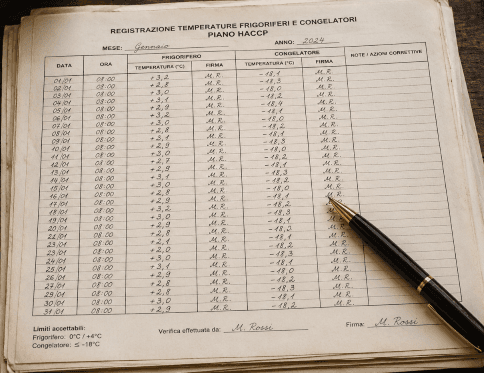 REGISTRAZIONE TEMPERATURE FRIGORIFERI E CONGELATORI
PIANO HACCP
MESE: Gennaio ANNO: 2024
FRIGORIFERO CONGELATORE
DATA ORA TEMPERATURA (°C) FIRMA TEMPERATURA (°C) FIRMA NOTE / AZIONI CORRETTIVE
01/01 08:00 +3,2 M.R. -18,1 M.R.
02/01 08:00 +2,8 M.R. -18,3 M.R.
03/01 08:00 +3,0 M.R. -18,0 M.R.
04/01 08:00 +3,1 M.R. -18,2 M.R.
05/01 08:00 +2,9 M.R. -18,4 M.R.
06/01 08:00 +3,2 M.R. -18,1 M.R.
07/01 08:00 +3,0 M.R. -18,0 M.R.
08/01 08:00 +2,8 M.R. -18,2 M.R.
09/01 08:00 +3,1 M.R. -18,1 M.R.
10/01 08:00 +2,9 M.R. -18,3 M.R.
11/01 08:00 +3,0 M.R. -18,0 M.R.
12/01 08:00 +2,7 M.R. -18,2 M.R.
13/01 08:00 +2,9 M.R. -18,1 M.R.
14/01 08:00 +3,1 M.R. -18,3 M.R.
15/01 08:00 +3,0 M.R. -18,2 M.R.
16/01 08:00 +2,8 M.R. -18,0 M.R.
17/01 08:00 +2,9 M.R. -18,1 M.R.
18/01 08:00 +3,2 M.R. -18,2 M.R.
19/01 08:00 +3,0 M.R. -18,3 M.R.
20/01 08:00 +2,9 M.R. -18,1 M.R.
22/01 08:00 +2,8 M.R. M.R.
08:00 M.R. -18,1 M.R.
23/01 08:00 M.R. -18,2 M.R.
24/01 08:00 +3,0 M.R. -18,3 M.R.
25/01 08:00 +3,1 M.R. -18,1 M.R.
26/01 08:00 +2,9 M.R. -18,0 M.R.
27/01 08:00 +2,8 M.R. -18,2 M.R.
28/01 08:00 +2,8 M.R. M.R.
29/01 08:00 +2,9 M.R. -18,3 M.R.
30/01 08:00 +3,0 M.R. -18,1 M.R.
31/01 08:00 +2,9 M.R. -18,2 M.R.
Limiti accettabili:
Frigorifero: 0°C / +4°C
Congelatore: ≤ -18°C
Verifica effettuata da: M. Rossi Firma: M. Rossi